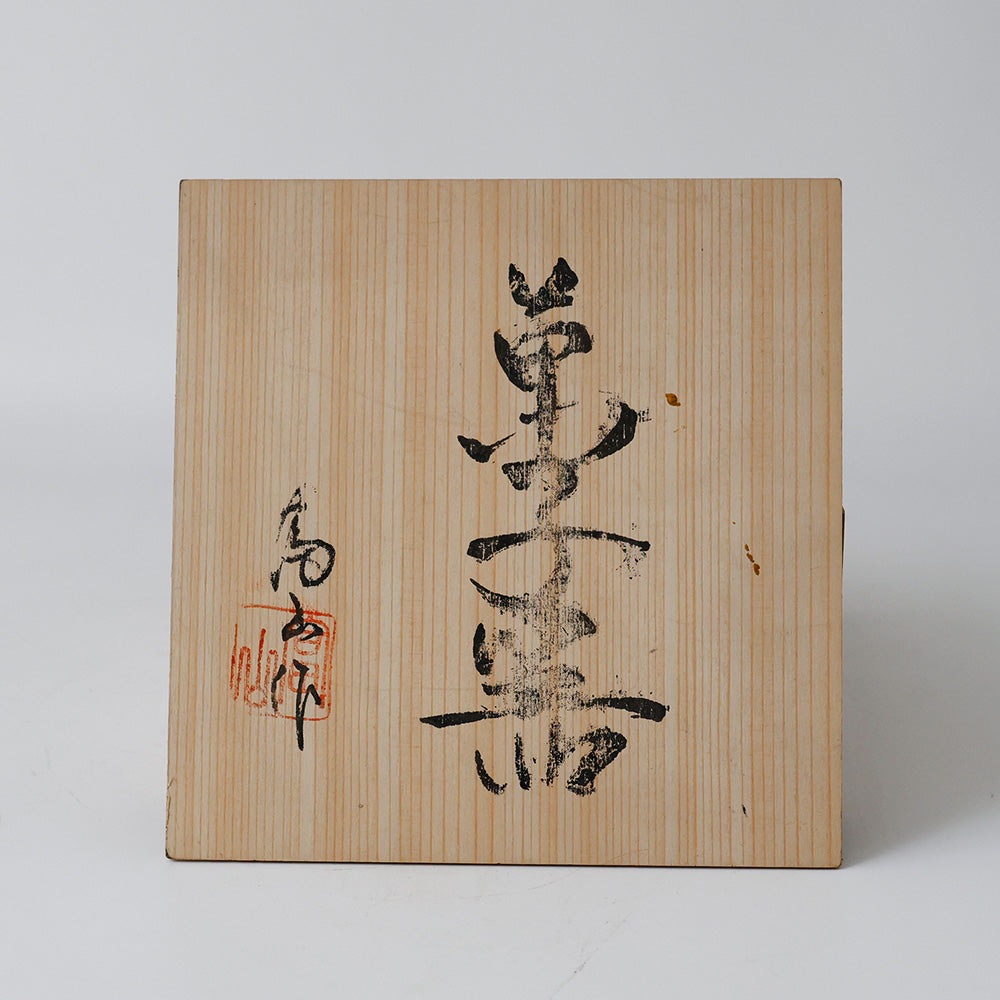 菓子器
高山作